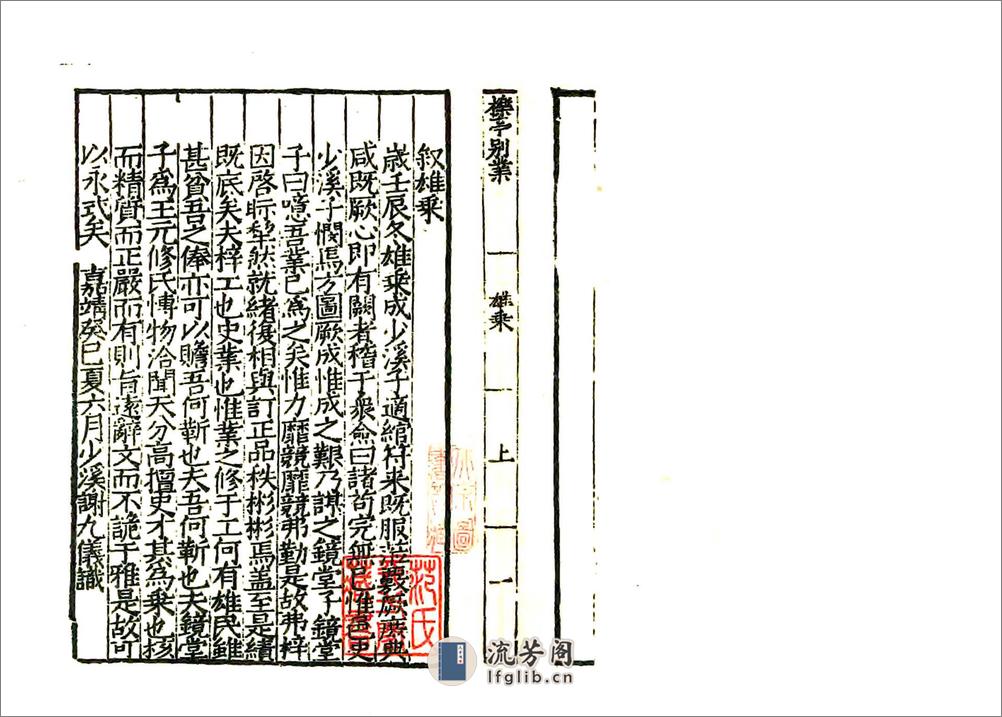 櫟亭别業 雄乘 上 一
叙雄乘
歳壬辰冬雄乘成少溪子適綰符来既服
咸既厥心即有闕者稽于衆僉曰諸苟完
少溪子憫焉方圖厥成惟成之艱乃謀之鏡堂子鏡堂
子曰噫吾業已爲之矣惟力靡競靡競弗勤是故弗梓
因啓眎犂然就緒復相與訂正品秩彬彬焉盖至是績
既底矣夫梓工也史業也惟業之修于工何有雄民雖
甚貧吾之俸亦可以贍吾何靳也夫吾何靳也夫鏡堂
子爲王元修氏博物洽聞天分高擅史才甚爲乘也核
而精質而正嚴而有則旨遠辭文而不詭于雅是故可
以永式矣 嘉靖癸巳夏六月少溪謝九儀識
范氏
流芳阁
lfglib.cn